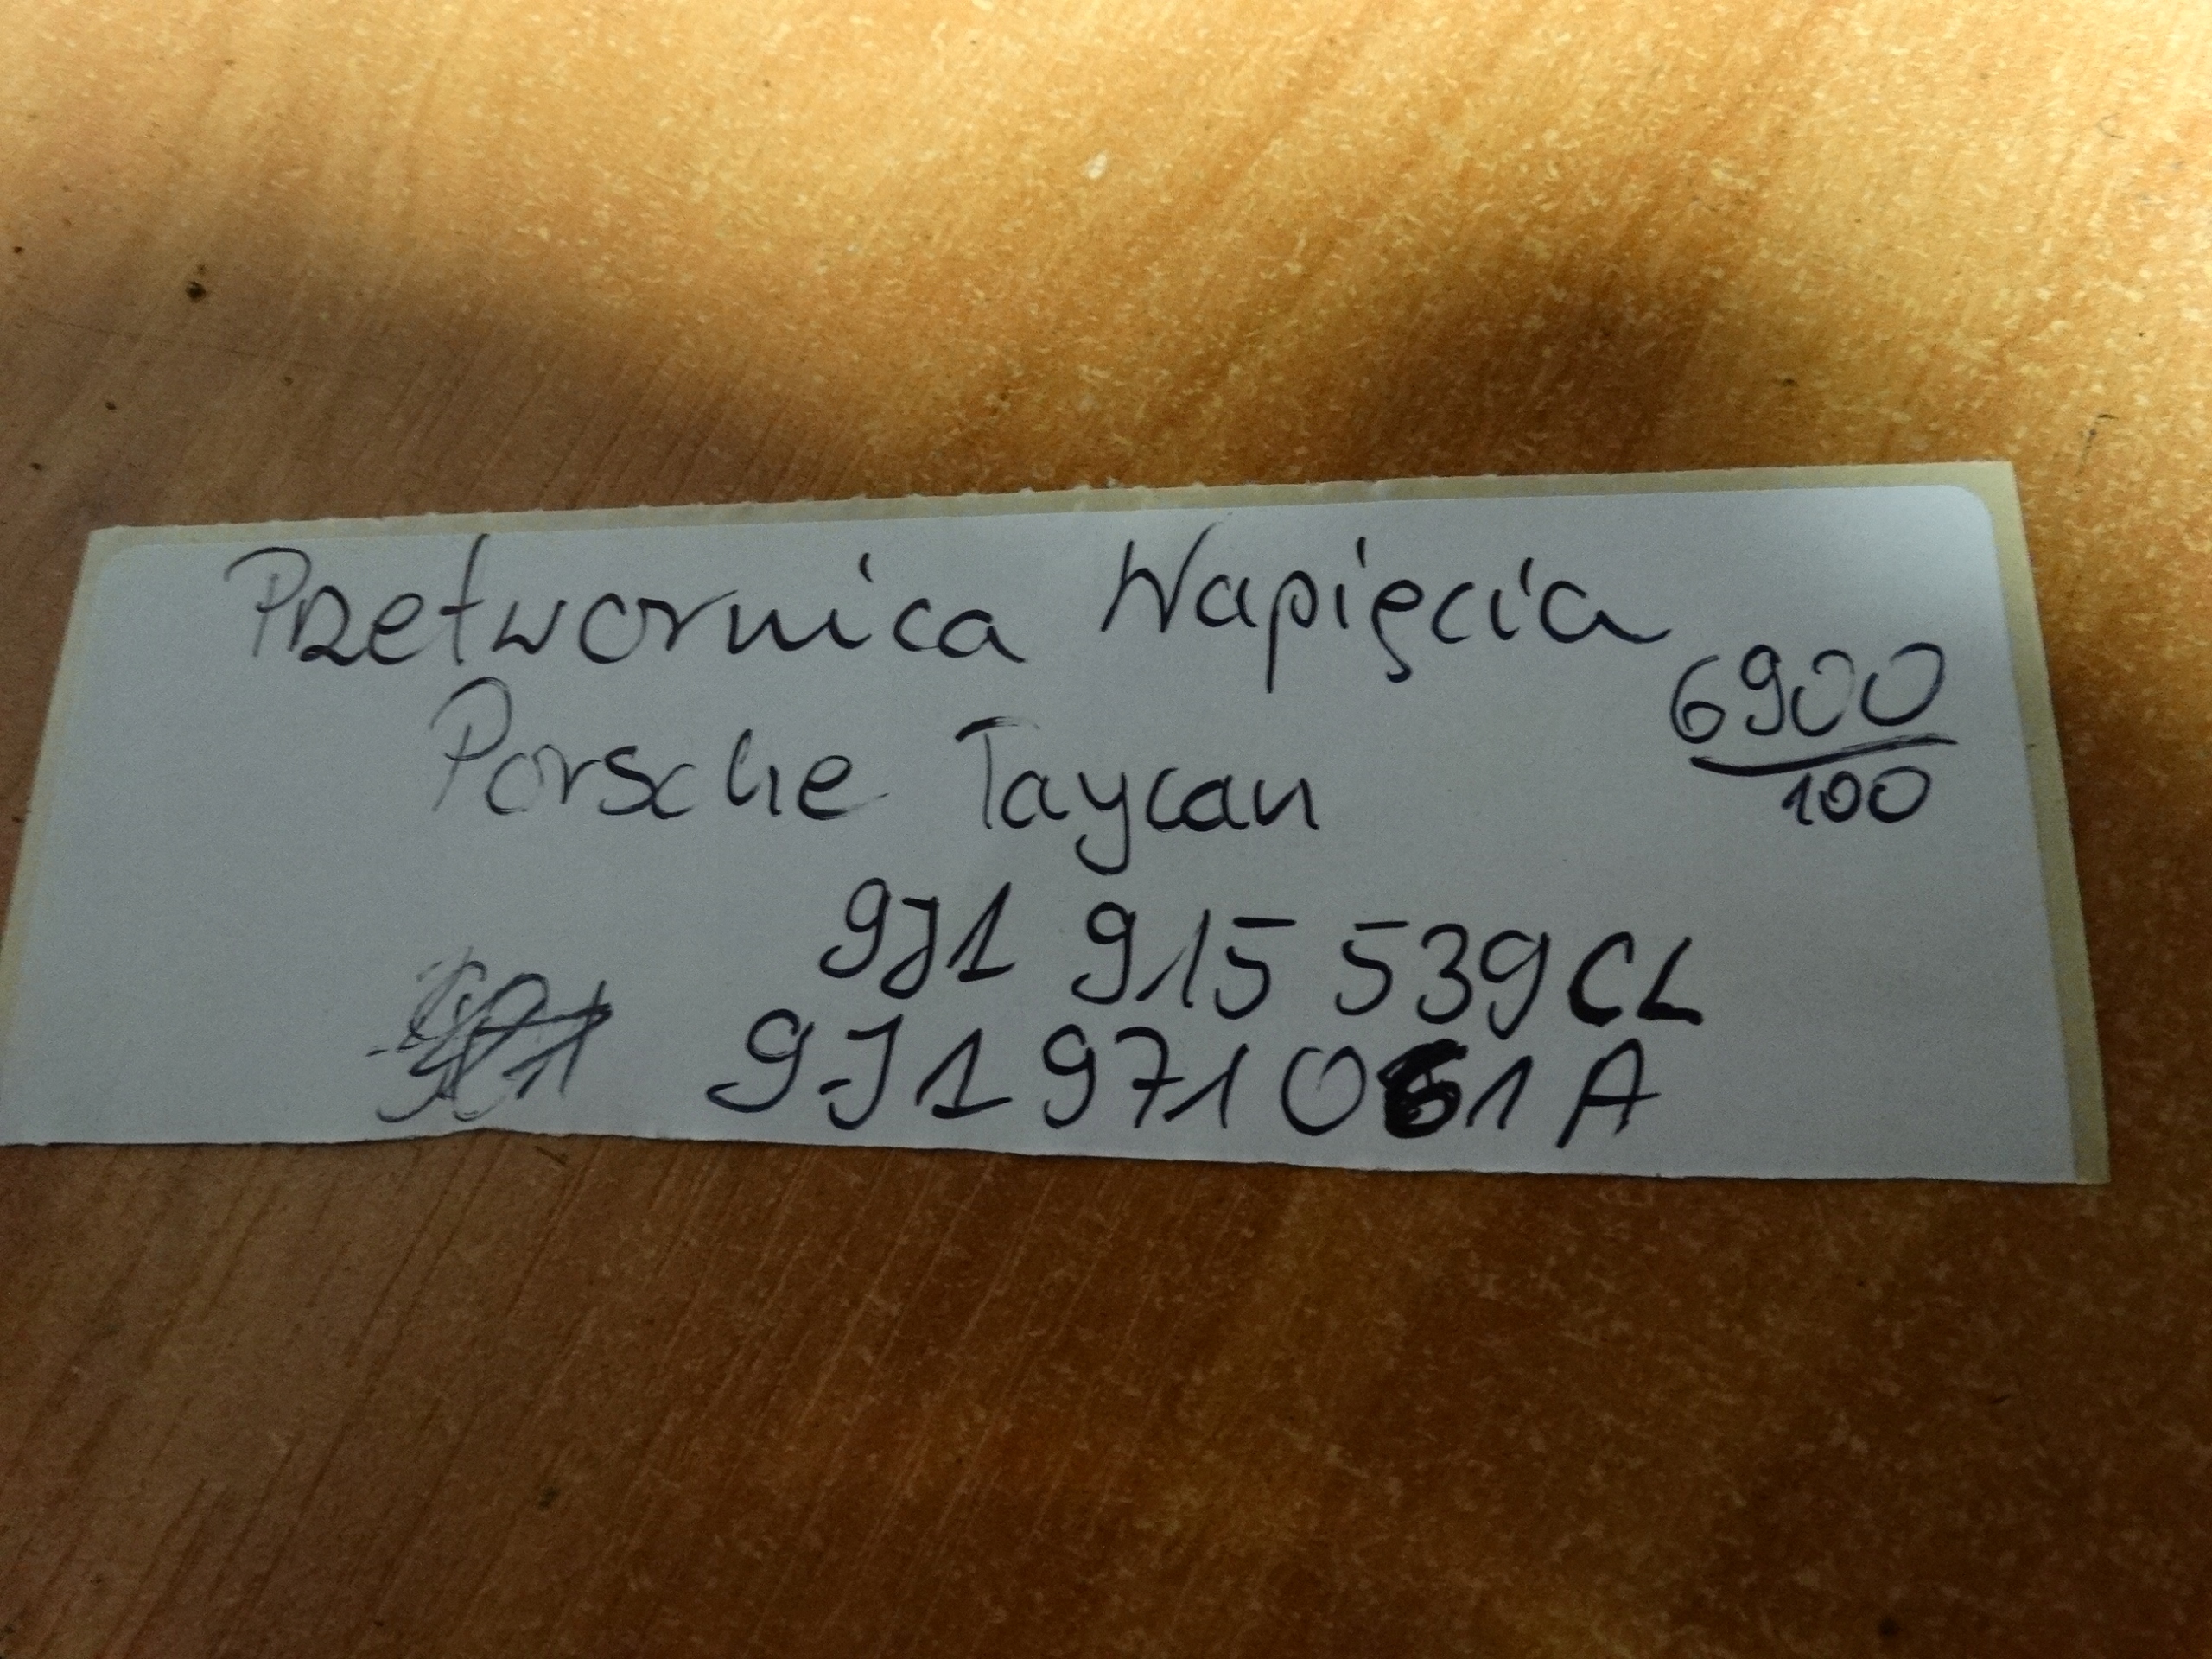 Przetwornica Napięcia
6900
Porsche Taycan
100
9J1 915 539 CL
9J1 971 061 A